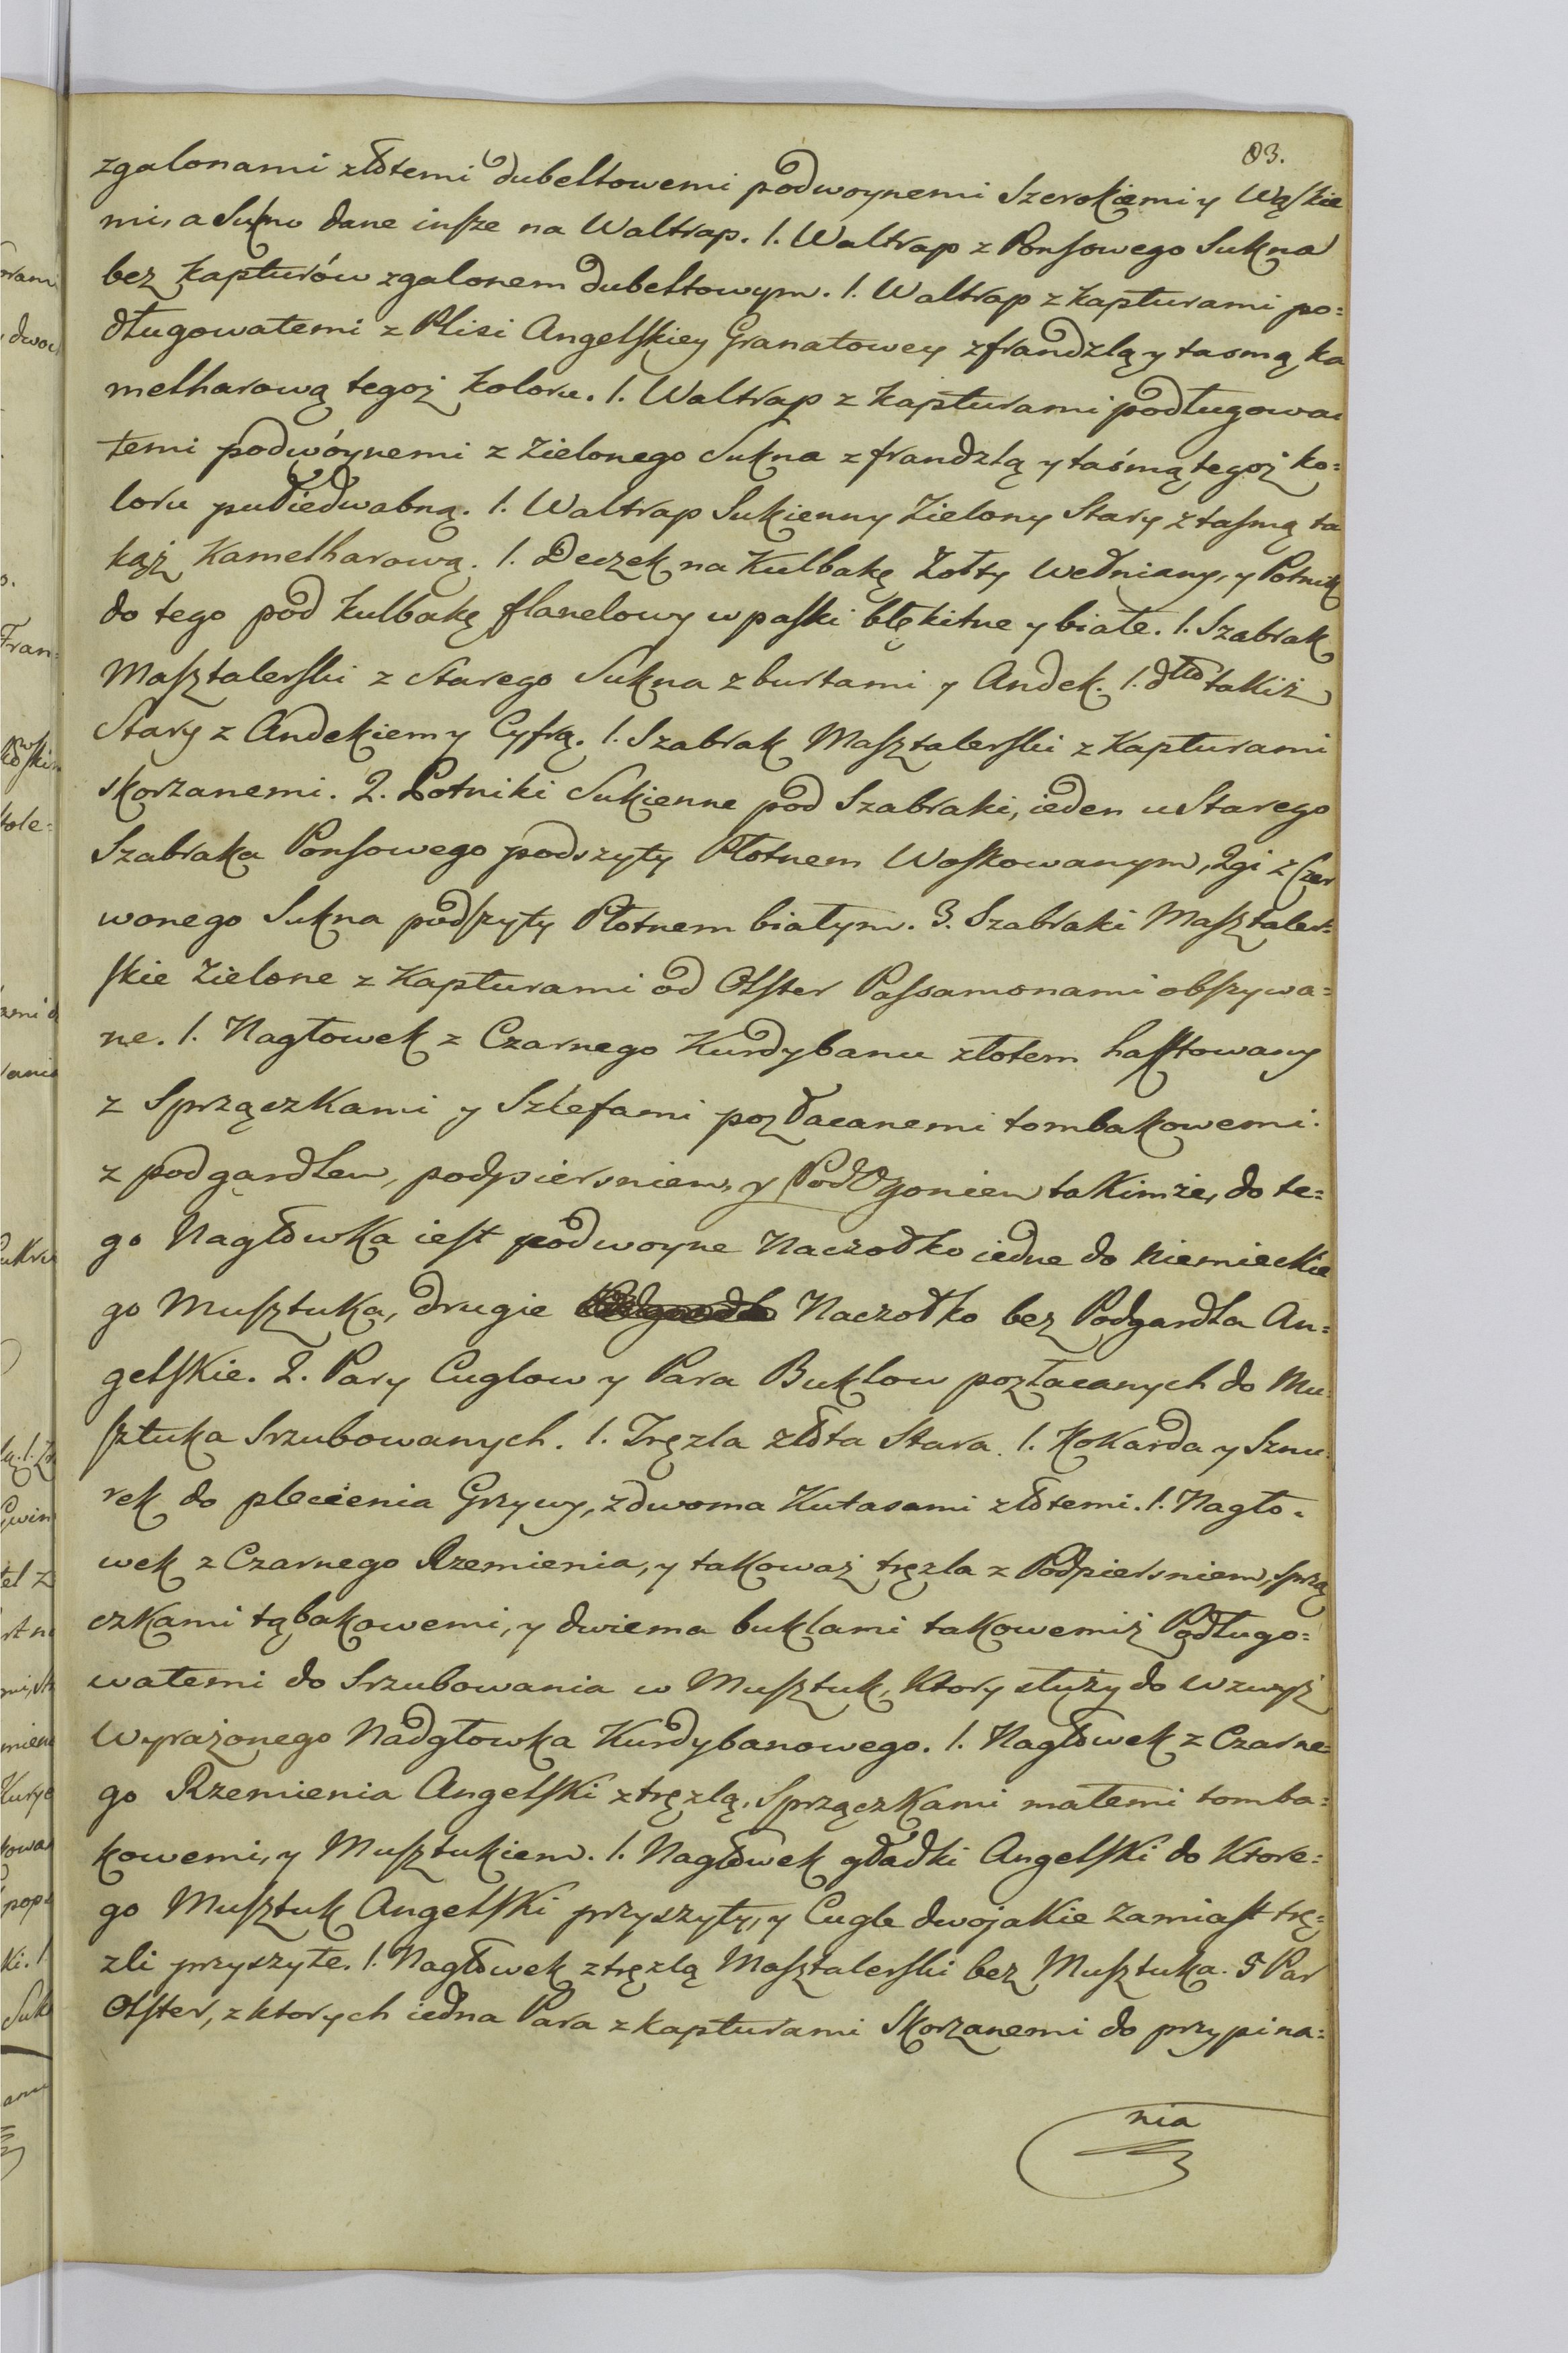 83.
zgalonami złotemi dubeltowemi podwoynemi Szerokiemi y Wąskie
mi, a Sukno dane insze na Waltrap. 1. Waltrap z Ponsowego Sukna
bez kapturów zgalonem dubeltowym. 1. Waltrap z kapturami po=
długowatemi z Plisi Angelskiey Granatowey zfrandzlą y tasmą ka
melharową tegoż koloru. 1. Waltrap z kapturami podługowa
temi podwóynemi z Zielonego Sukna z frandzlą y taśmą tegoż ko=
loru pułiedwabną. 1. Waltrap Sukienny Zielony Stary z tasmą ta
kąż Kamelharową. 1. Deczek na Kulbakę Żołty Wełniany, y Potnik
do tego pod kulbakę flanelowy w paski błękitne y białe. 1. Szabrak
Masztalerski z Starego Sukna z burtami y Andek. 1. dtto takiż
Stary z Andekiem y Cyfrą. 1. Szabrak Masztalerski z Kapturami
skorzanemi. 2. Potniki Sukienne pod Szabraki, ieden u Starego
Szabraka Ponsowego podszyty Płotnem Woskowanym, 2gi z Czer
wonego Sukna podszyty Płotnem białym. 3. Szabraki Masztaler=
skie Zielone z Kapturami od Olster Passamonami obszywa=
ne. 1. Nagłowek z Czarnego Kurdybanu złotem haftowany
z Sprzączkami y Szlefami pozłacanemi tombakowemi:
z podgardlem, podpiersniem, y Podogoniem takimże, do te=
go Nagłowka iest podwoyne Naczołko iedne do Niemieckie
go Musztuka, drugie Naczołko bez Podgardla An=
gelskie. 2. Pary Cuglow y Para Buklow pozłacanych do Mu=
sztuka Srzubowanych. 1. Tręzla złota Stara. 1. Kokarda y Sznu=
rek do plecienia Grzywy, z dwoma Kutasami złotemi. 1. Nagło=
wek z Czarnego Rzemienia, y takoważ tręzla z Podpiersniem, sprzą
czkami tąbakowemi, y dwiema buklami takowemiż Podługo=
watemi do Srzubowania w Musztuk, Ktory służy do Wzwyż
Wyrażonego Nadgłowka Kurdybanowego. 1. Nagłowek z Czarne=
go Rzemienia Angelski z tręzlą, Sprzączkami małemi tomba=
kowemi, y Musztukiem. 1. Nagłowek gładki Angelski do Ktore=
go Musztuk Angelski przyszyty, y Cugle dwojakie zamiast trę=
zli przyszyte. 1. Nagłowek z tręzlą Masztalerski bez Musztuka. 5 Par
Olster, z ktorych iedna Para z kapturami Skorzanemi do przypina=
nia